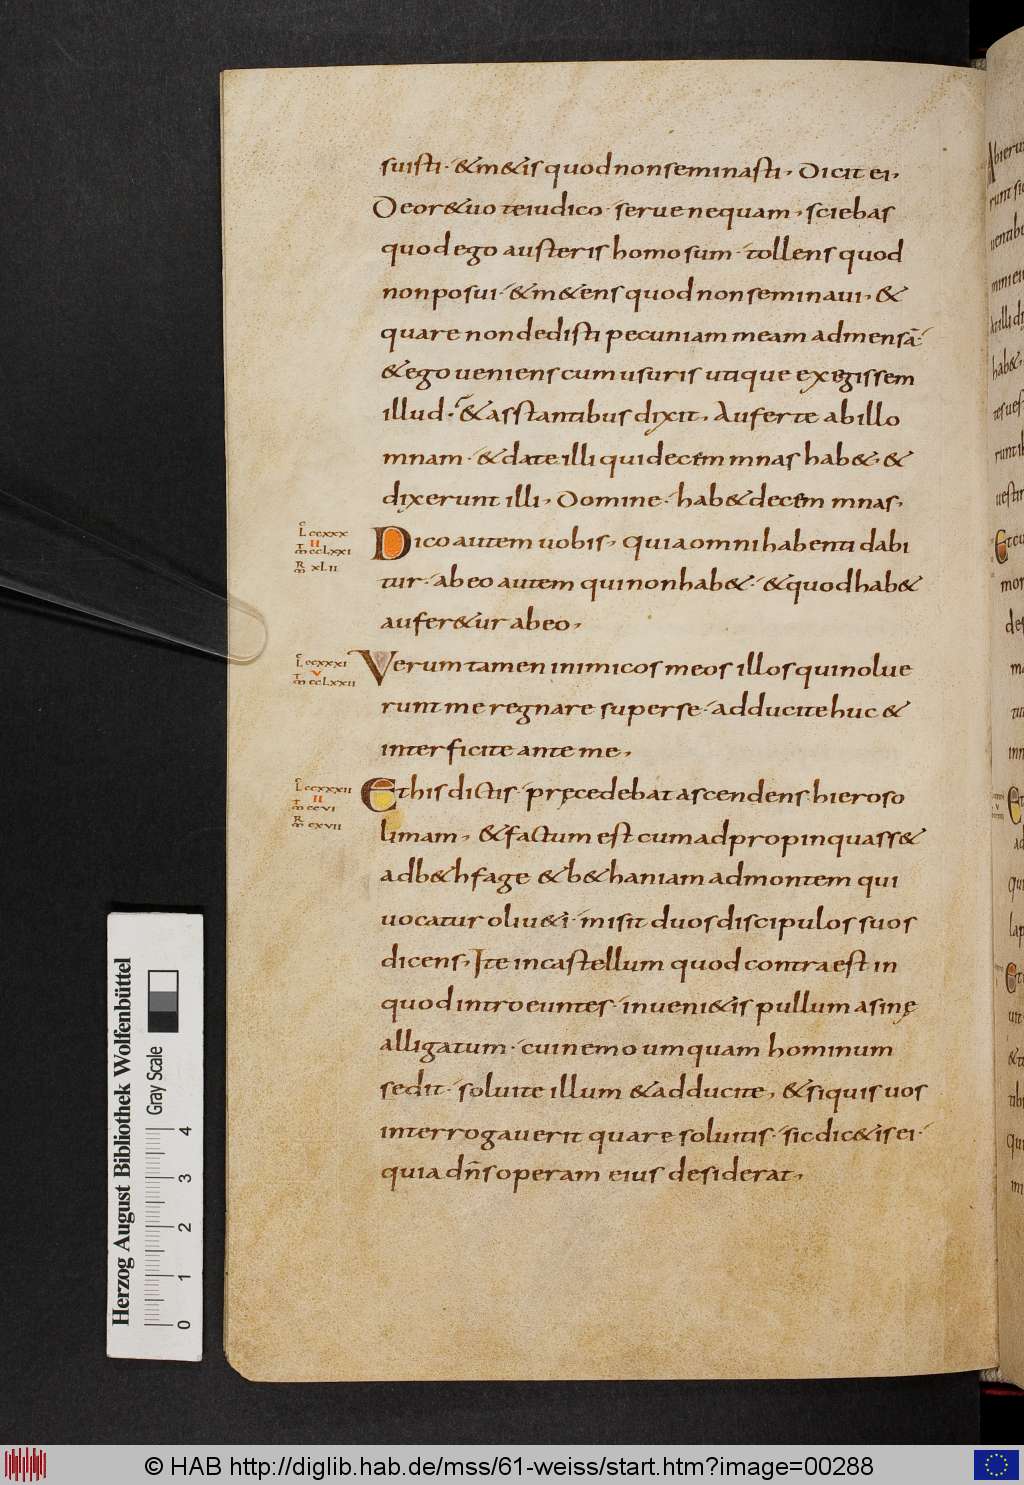 suisti· &m&is quod non seminasti, Dicit ei,
De or& uo te iudico· serue nequam, sciebas
quod ego austeris homo sum· tollens quod
non posui· &m&ens quod non seminaui, &
quare non dedisti pecuniam meam ad mensā·
& ego ueniens cum usuris utique exegissem
illud· & asstantibus dixit, Auferte ab illo
mnam· & date illi qui decem mnas hab&, &
dixerunt illi, Domine· hab& decem mnas,
L ccxxx
II
m ccLxxi
m xLii
Dico autem uobis, quia omni habenti dabi
tur· ab eo autem qui non hab&· & quod hab&
aufer&ur ab eo,
L ccxxxi
V
m ccLxxii
Verum tamen inimicos meos illos qui nolue
runt me regnare super se· adducite huc &
interficite ante me,
L ccxxxii
II
m ccvi
m cxvii
Et his dictis· pręcedebat ascendens hieroso
limam, & factum est cum adpropinquass&
ad b&hfage & b&haniam ad montem qui
uocatur oliu&i· misit duos discipulos suos
dicens, Ite in castellum quod contra est in
quod introeuntes· inueni&is pullum asinę
alligatum· cui nemo umquam hominum
sedit· soluite illum & adducite, & si quis uos
interrogauerit quare soluitis· sic dic&is ei·
quia dn̄s operam eius desiderat,
Herzog August Bibliothek Wolfenbüttel
Gray Scale
0 1 2 3 4
© HAB http://diglib.hab.de/mss/61-weiss/start.htm?image=00288